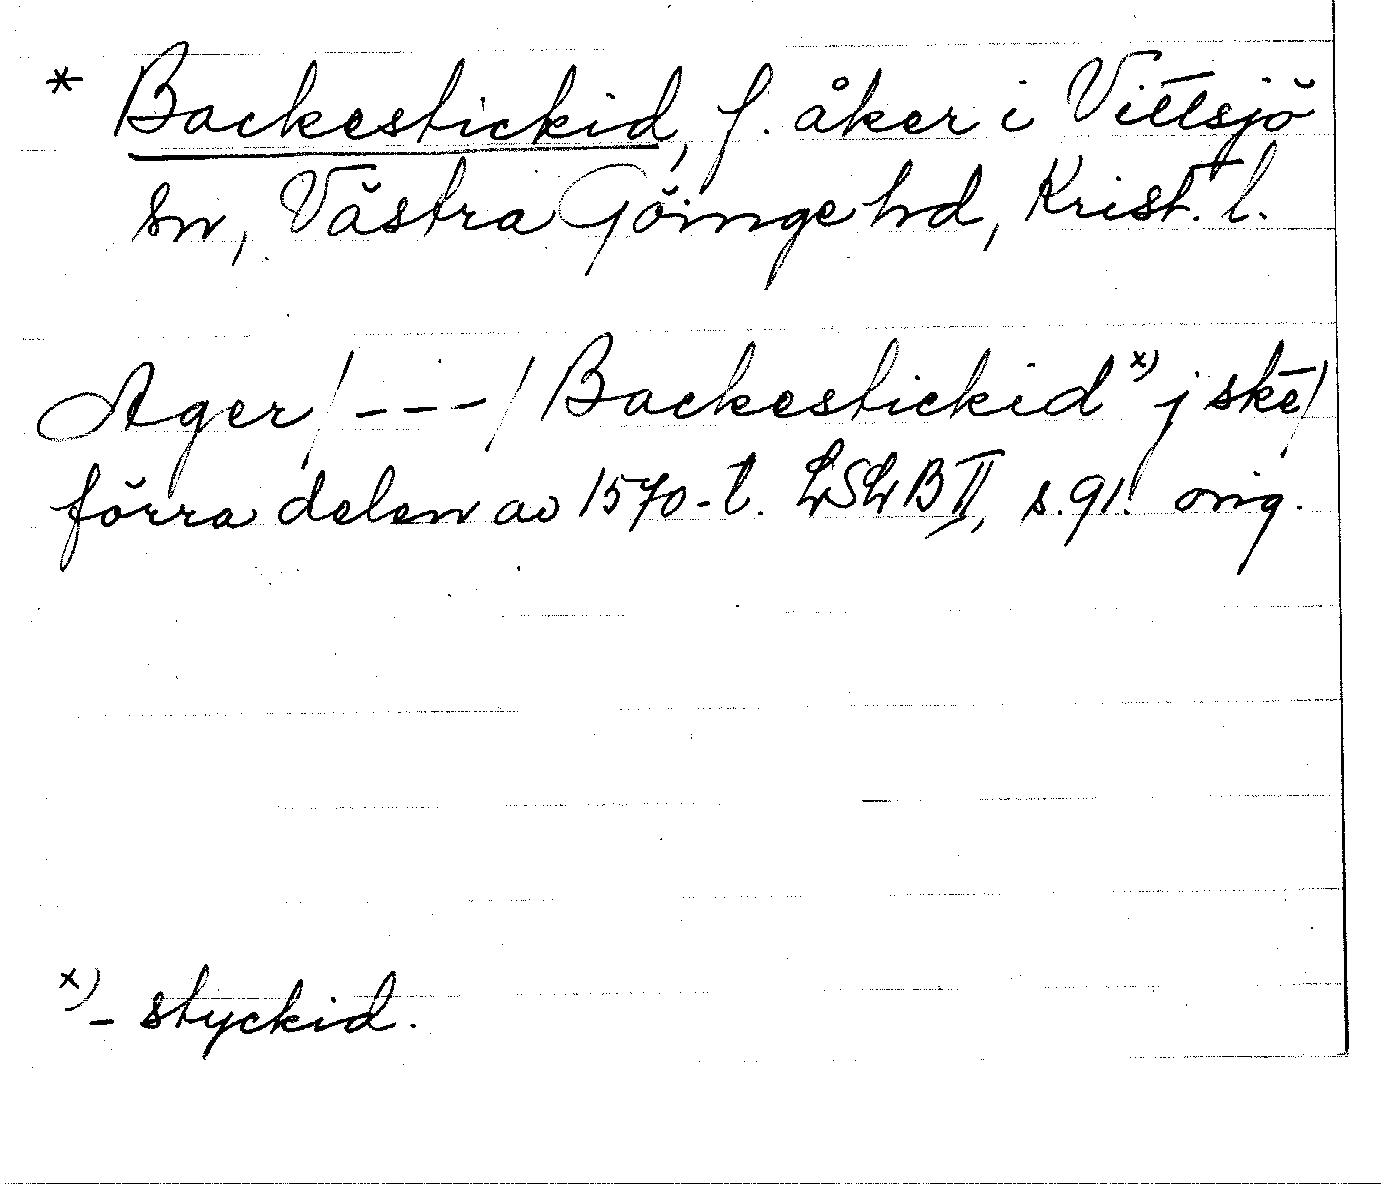 * Backestickid, f. åker i Vittsjö
sn, Västra Göinge hd, Krist. l.
Ager /---/ Backestickid x) j skē/
förra delen av 1570-t. LSLB II, s. 91. orig.
x) - styckid.